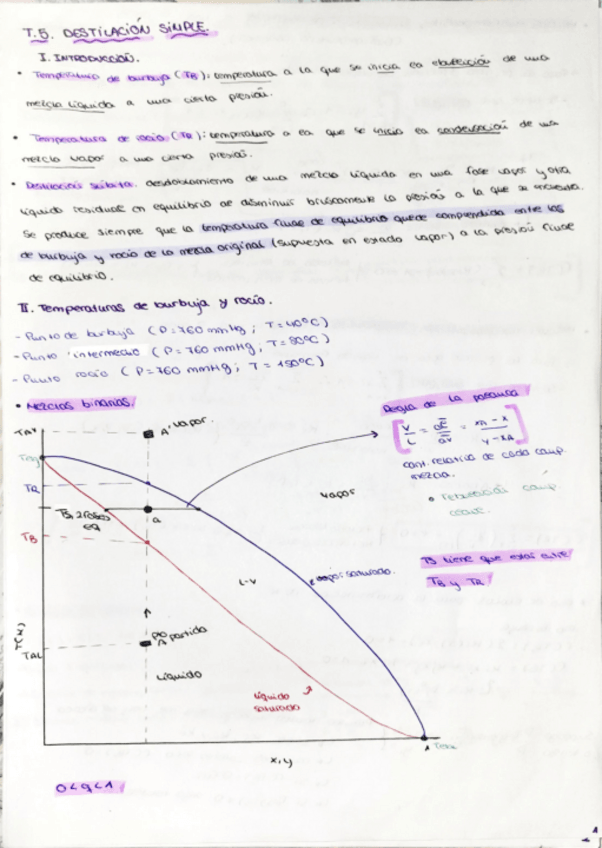 T.5. DESTILACIÓN SIMPLE.
I. INTRODUCCIÓN.
• Temperatura de burbuja (TB): temperatura a la que se inicia la ebullición de una
mezcla líquida a una cierta presión.
• Temperatura de rocío (TR): temperatura a la que se inicia la condensación de una
mezcla vapor a una cierta presión.
• Destilación súbita: desdoblamiento de una mezcla líquida en una fase vapor y otra
líquida residual en equilibrio al disminuir bruscamente la presión a la que se encuentra.
Se produce siempre que la temperatura final de equilibrio quede comprendida entre las
de burbuja y rocío de la mezcla original (supuesta en estado vapor) a la presión final
de equilibrio.
II. Temperaturas de burbuja y rocío.
- Punto de burbuja (P = 760 mmHg; T = 40°C)
- Punto intermedio (P = 760 mmHg; T = 80°C)
- Punto rocío (P = 760 mmHg; T = 150°C)
• Mezclas binarias.
Regla de la palanca
V/L = aL/aV = xA - x / y - xA
cant. relativa de cada comp.
mezcla.
TAV
A' vapor.
TR
T5, 2 fases
EQ
a
TB
vapor
L-V
vapor saturado.
T5 tiene que estar entre
TB y TR
pto partida
A
TAL
Líquido
T(K)
líquido
saturado
x,y
1
0<q<1
1